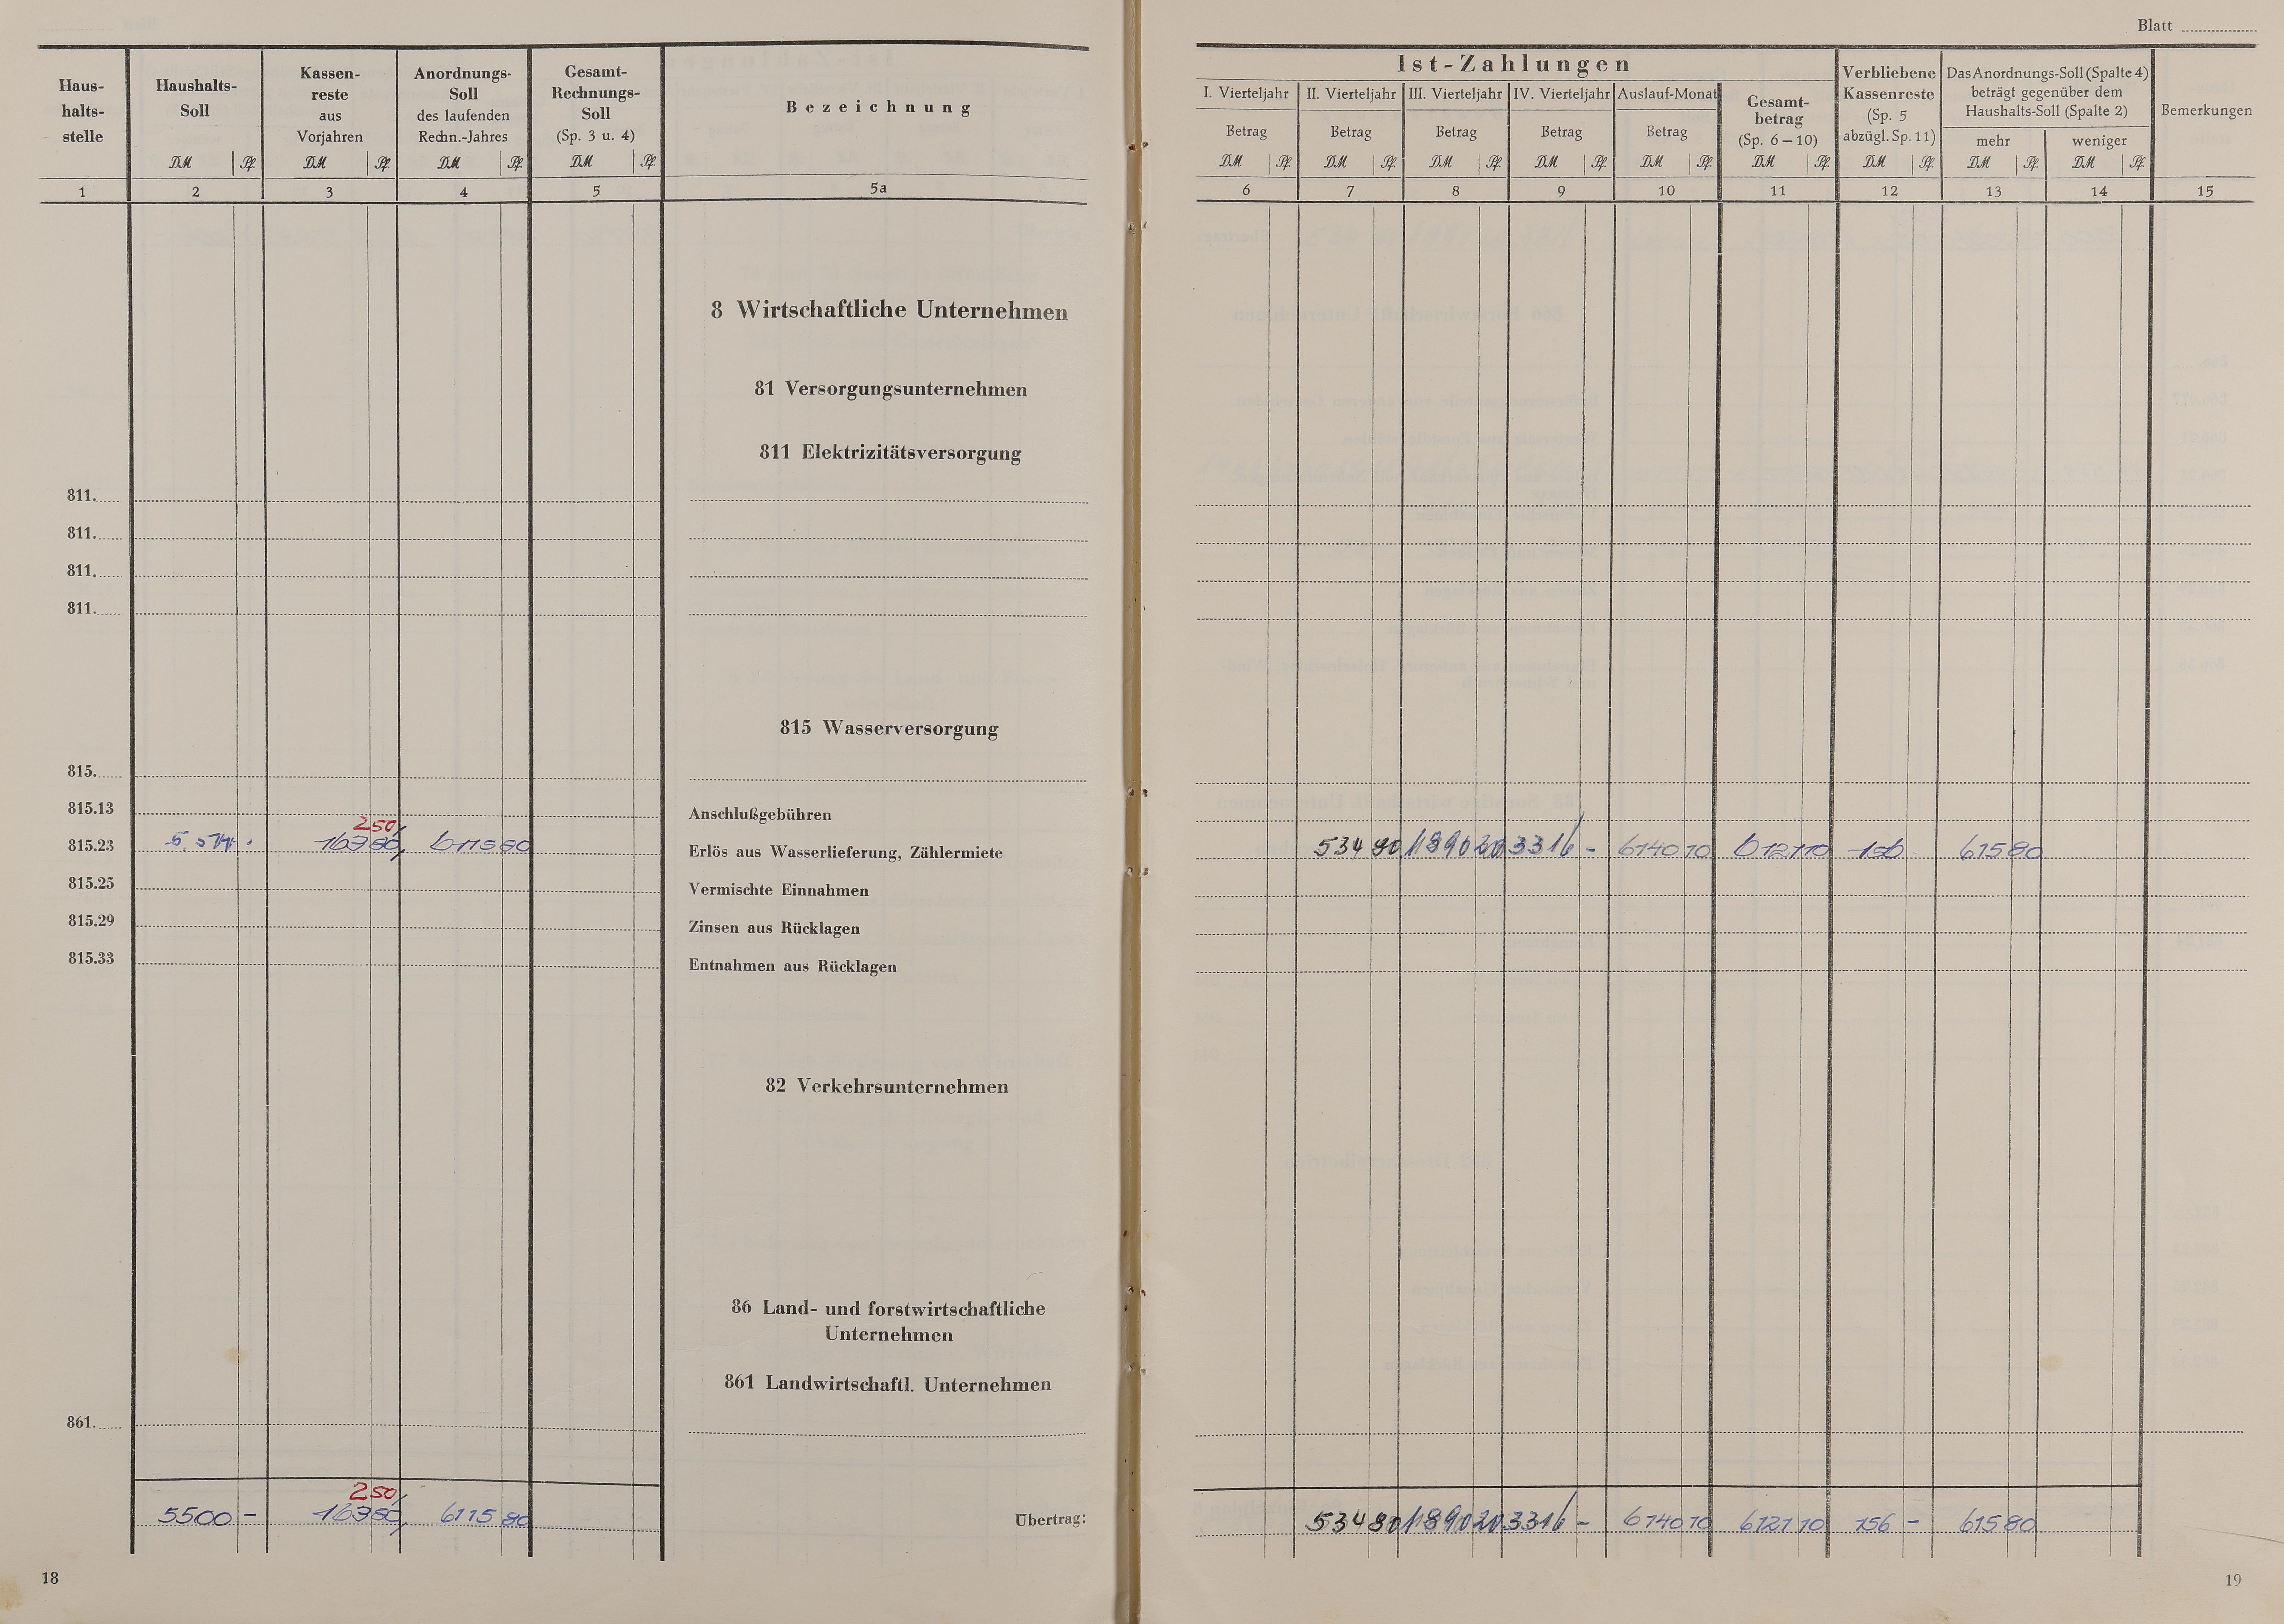 Blatt
Haus-
halts-
stelle
Haushalts-
Soll
Kassen-
reste
aus
Vorjahren
Anordnungs-
Soll
des laufenden
Rechn.-Jahres
Gesamt-
Rechnungs-
Soll
(Sp. 3 u. 4)
Bezeichnung
DM Pf. DM Pf. DM Pf. DM Pf.
1 2 3 4 5 5a
Ist-Zahlungen
I. Vierteljahr II. Vierteljahr III. Vierteljahr IV. Vierteljahr Auslauf-Monat
Betrag Betrag Betrag Betrag Betrag
Gesamt-
betrag
(Sp. 6–10)
Verbliebene
Kassenreste
(Sp. 5
abzügl. Sp. 11)
Das Anordnungs-Soll (Spalte 4)
beträgt gegenüber dem
Haushalts-Soll (Spalte 2)
mehr weniger
Bemerkungen
DM Pf. DM Pf. DM Pf. DM Pf. DM Pf. DM Pf. DM Pf. DM Pf. DM Pf.
6 7 8 9 10 11 12 13 14 15
8 Wirtschaftliche Unternehmen
81 Versorgungsunternehmen
811 Elektrizitätsversorgung
811.
811.
811.
811.
815 Wasserversorgung
815.
815.13 Anschlußgebühren
250,
815.23 Erlös aus Wasserlieferung, Zählermiete 534 80 1890 20 3316 - 61580
815.25 Vermischte Einnahmen
815.29 Zinsen aus Rücklagen
815.33 Entnahmen aus Rücklagen
82 Verkehrsunternehmen
86 Land- und forstwirtschaftliche
Unternehmen
861 Landwirtschaftl. Unternehmen
861.
250,
5500 - 6115 80 Übertrag: 534 80 1890 20 3316 - 6121 10 156 - 615 80
18
19